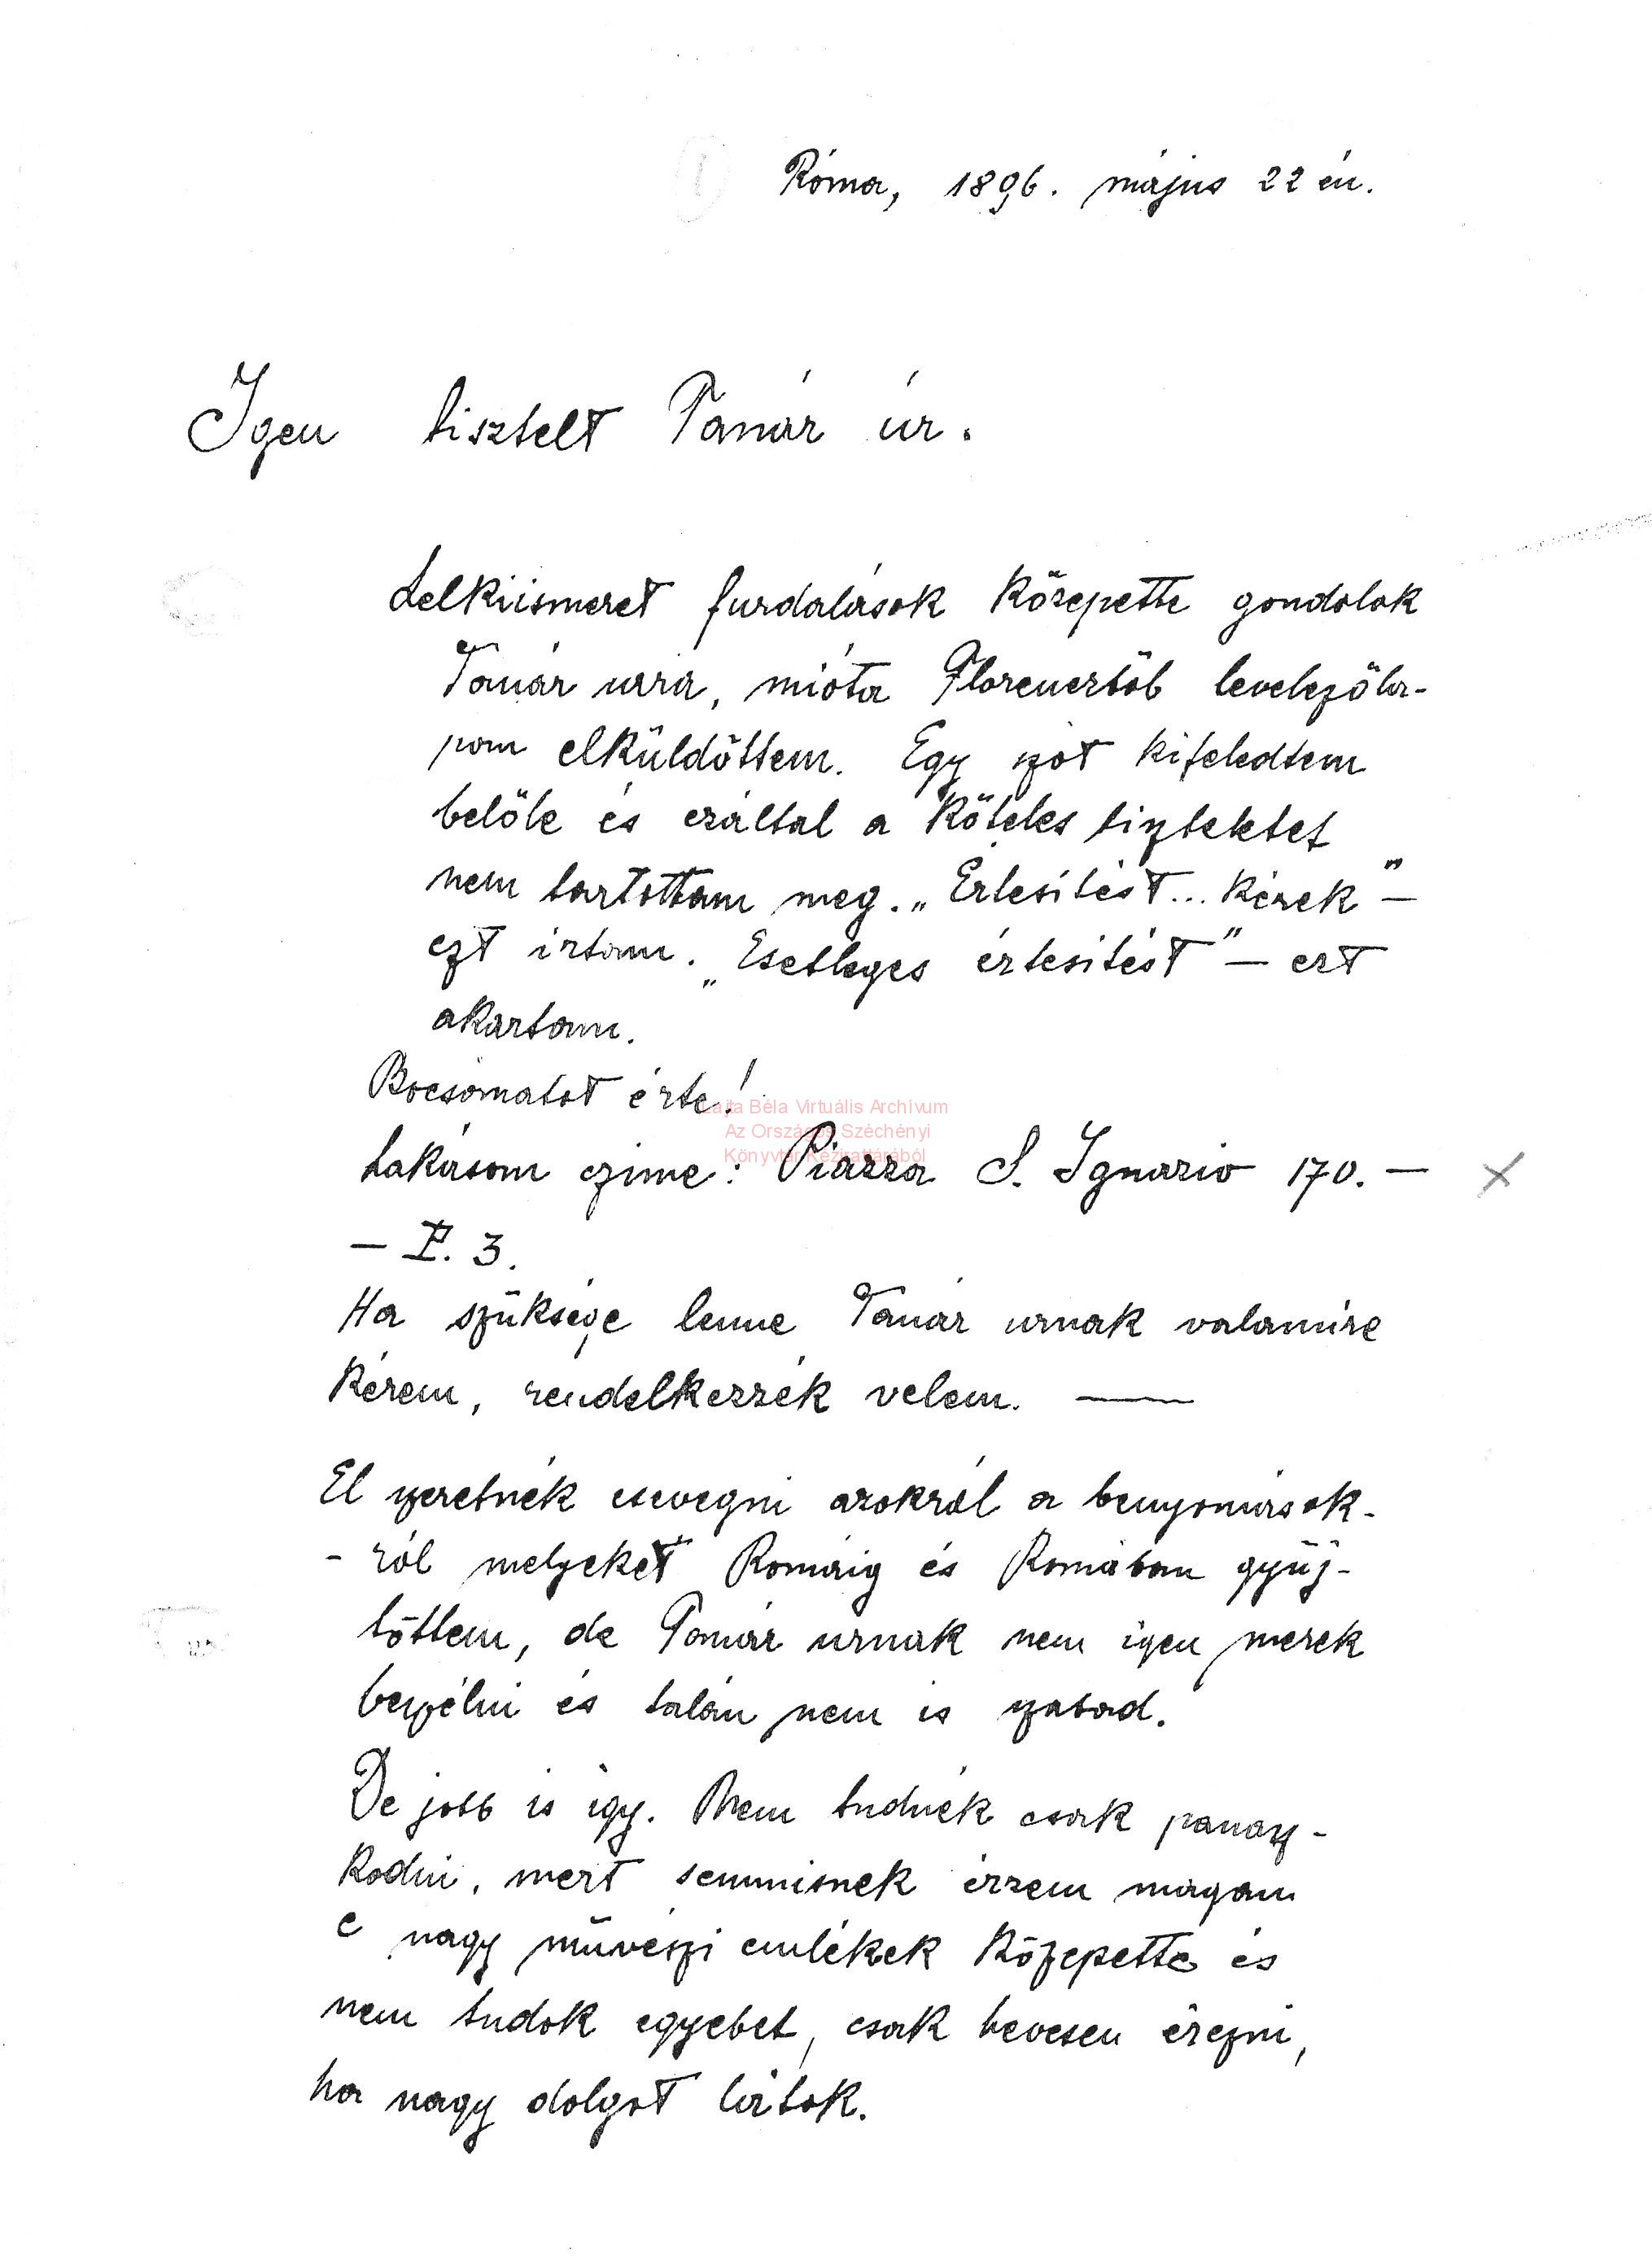 Róma, 1896. május 22 én.
Igen tisztelt Tanár úr.
Lelkiismeret furdalások közepette gondolok
Tanár urra, mióta Florenczböl levelezöla-
pom elküldöttem. Egy szót kifeledtem
belöle és ezáltal a köteles tiszteletet
nem tartottam meg. „Értesitést... kérek" –
ezt irtam. „Esetleges értesitést" – ezt
akartam.
Bocsánatot érte!
Lajta Béla Virtuális Archívum
Az Országos Széchényi
Könyvtár Kézirattárából
Lakásom czime: Piazza S. Ignazio 170. –
– P. 3.
Ha szüksége lenne Tanár urnak valamire
kérem, rendelkezzék velem. —
El szeretnék csevegni azokról a benyomások-
- ról melyeket Romáig és Romában gyüj-
töttem, de Tanár urnak nem igen merek
beszélni és talán nem is szabad.
De jobb is igy. Nem tudnék csak panasz-
kodni, mert semmisnek érzem magam
e nagy müvészi emlékek közepette és
nem tudok egyebet, csak hevesen érezni,
ha nagy dolgot látok.